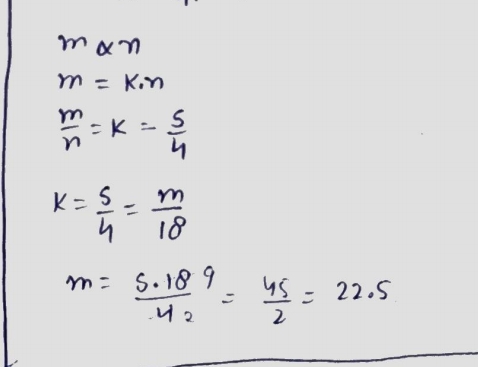 m ∝ n
m = K.n
m/n = K = 5/4
K = 5/4 = m/18
m = 5.18 9/4 2 = 45/2 = 22.5